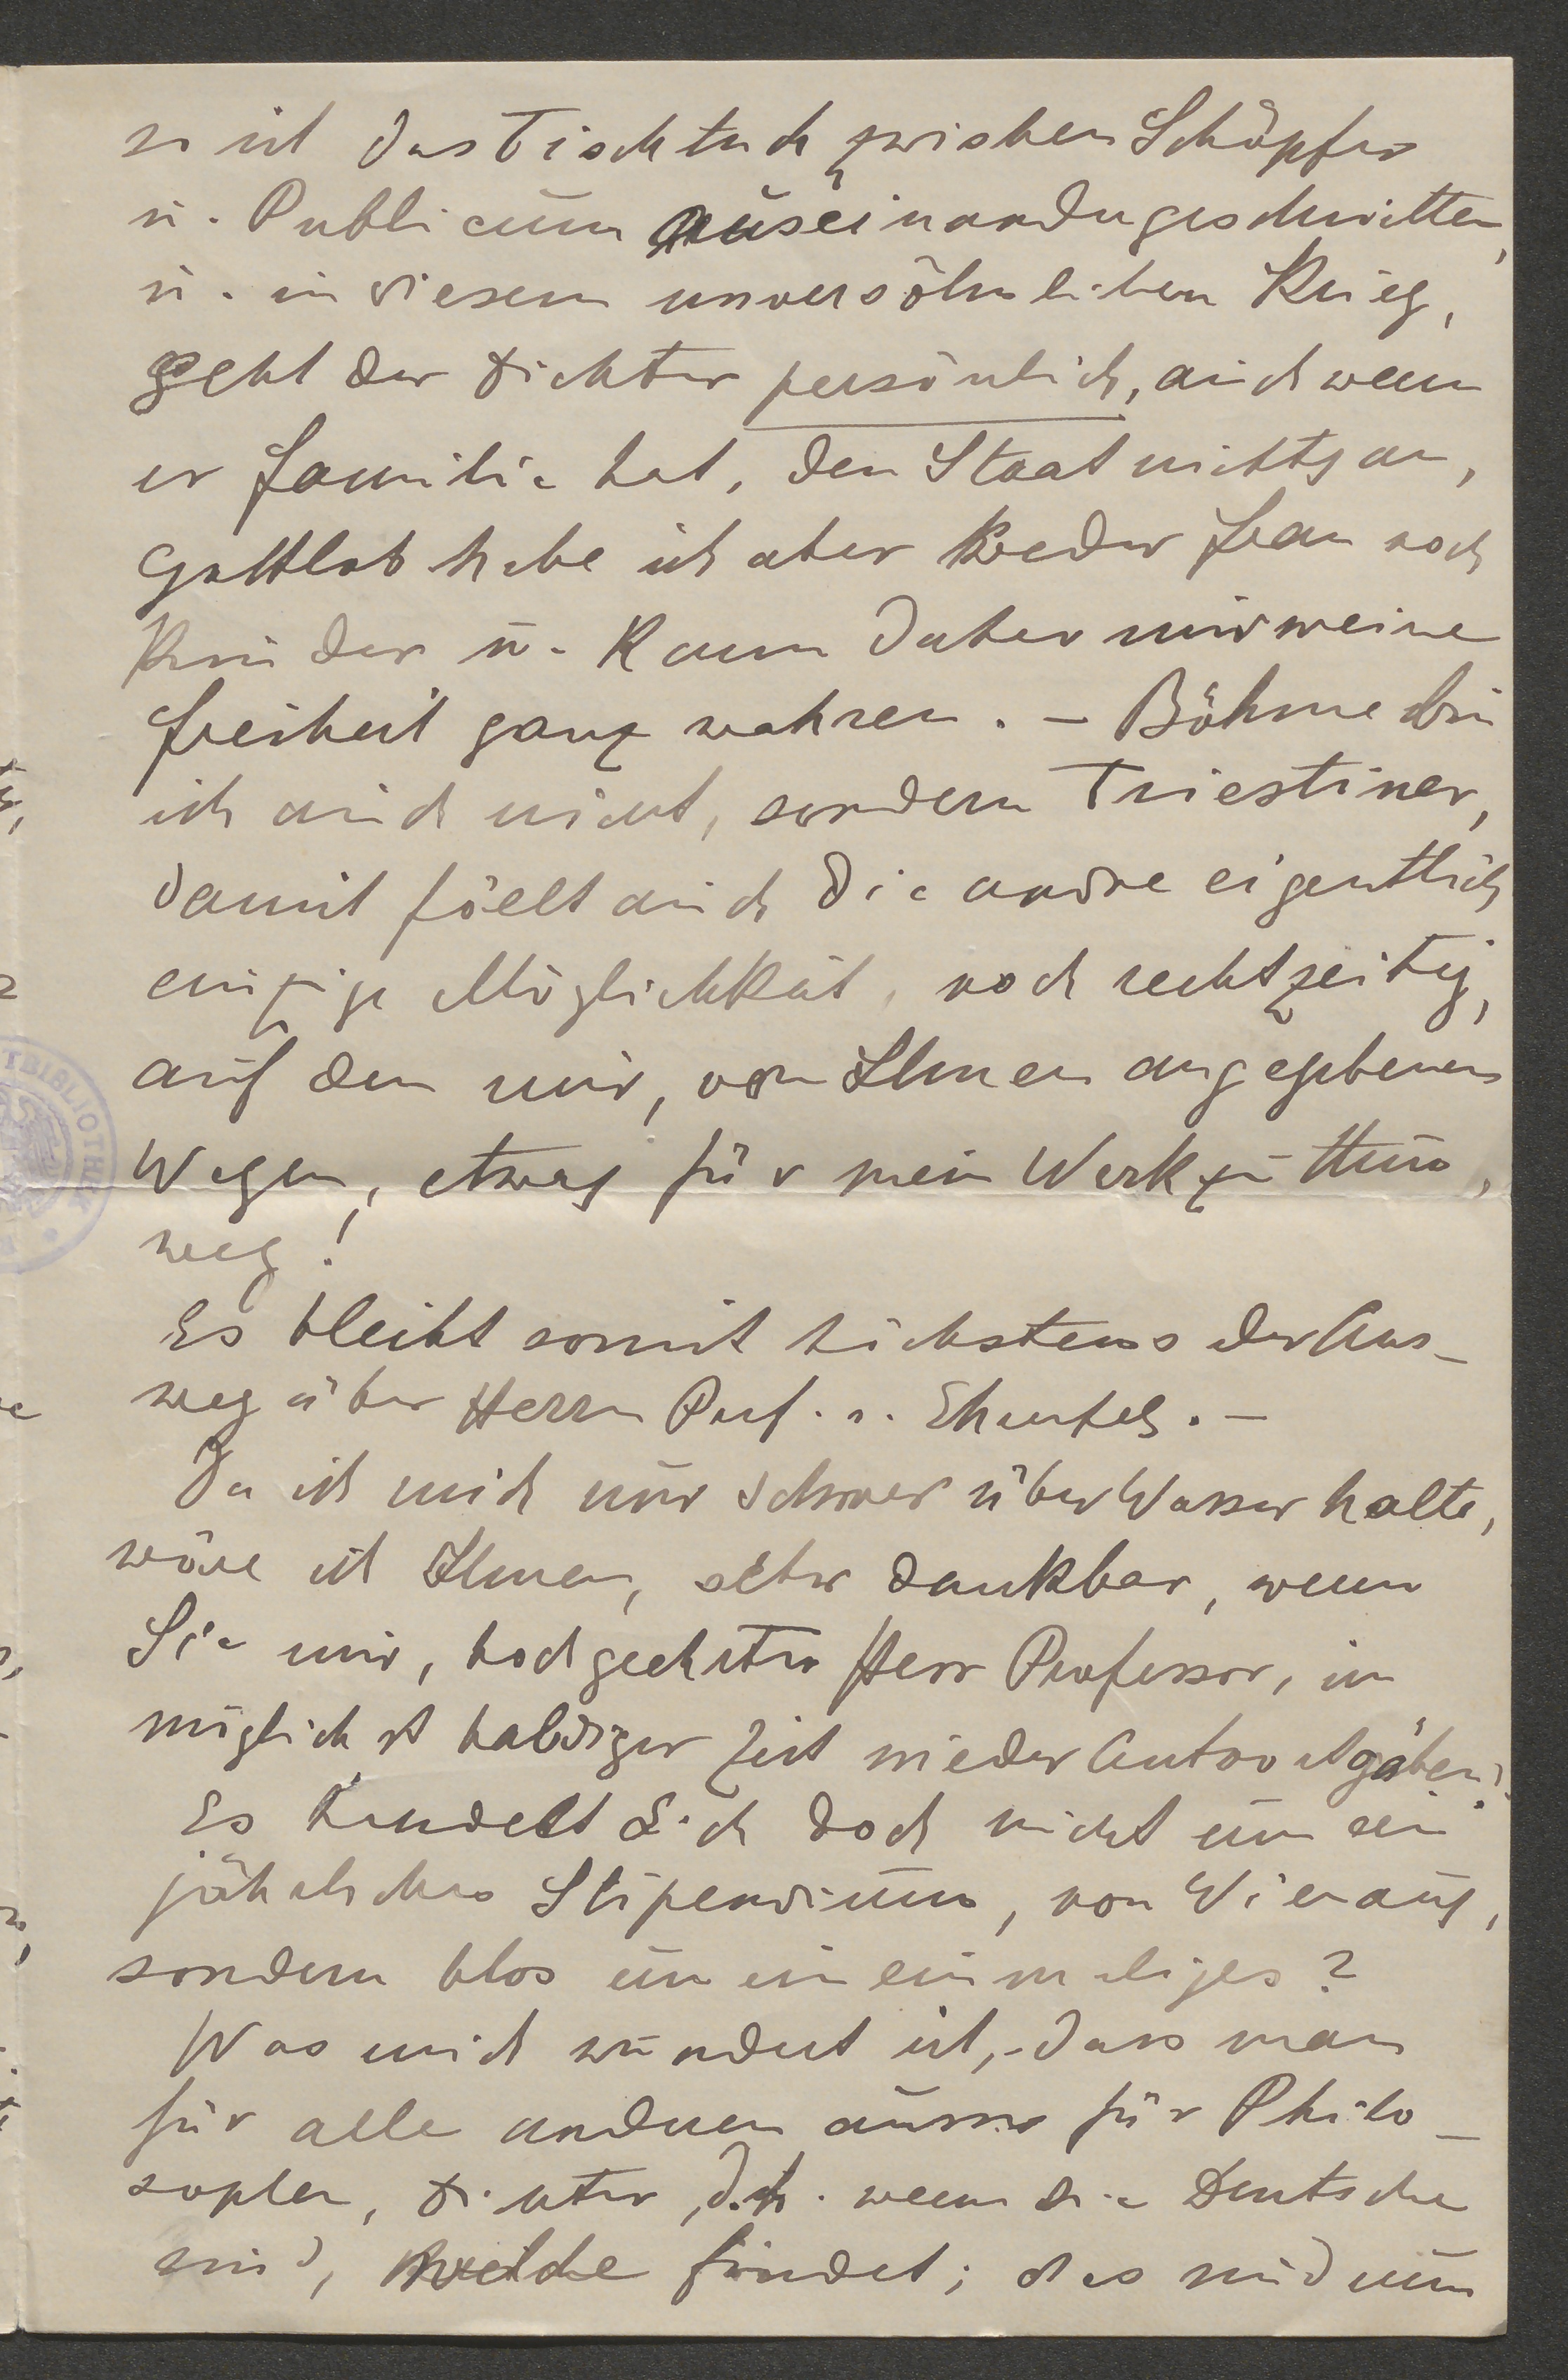 so ist das Tischtuch zwischen Schöpfer
u. Publicum auseinandergeschnitten,
u. in diesem unversöhnlichen Krieg,
geht der Dichter persönlich, auch wenn
er Familie hat, den Staat nichts an,
Gottlob habe ich aber weder Frau noch
Kinder u. kann daher mir meine
Freiheit ganz wahren. – Böhme bin
ich auch nicht, sondern Triestiner,
damit fällt auch die andre eigentlich
einzige Möglichkeit, noch rechtzeitig,
auf den mir, von Ihnen angegebenen
Wegen, etwas für mein Werk zu thun,
weg!
Es bleibt somit höchstens der Aus-
weg über Herrn Prof. v. Ehrenfels. –
Da ich mich nur schwer über Wasser halte,
wäre ich Ihnen, sehr dankbar, wenn
Sie mir, hochgeehrter Herr Professor, in
möglichst baldiger Zeit wieder Antwort gäben?
Es handelt sich doch nicht um ein
jährliches Stipendium, von Wien aus,
sondern blos um ein einmaliges?
Was mich wundert ist, dass man
für alle anderen ausser für Philo-
sophen, Dichter, d.h. wenn sie Deutsche
sind, welche findet; das sind nun
TBIBLIOTHEK